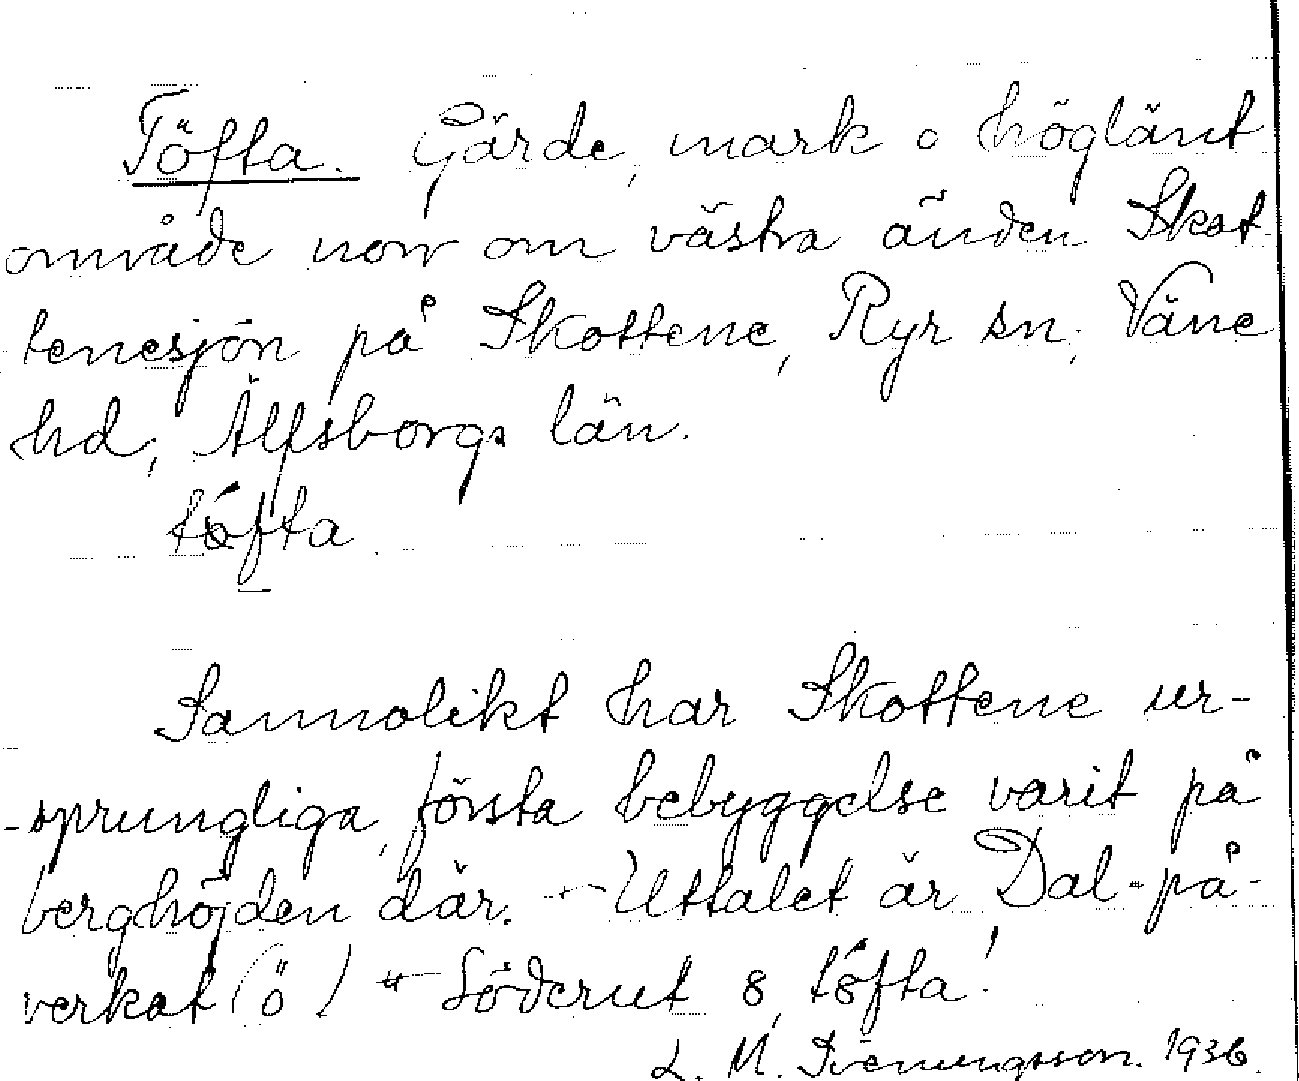 Töfta. Gärde, mark o höglänt
område norr om västra änden Skot-
tenesjön på Skottene, Ryr sn, Väne
hd, Älfsborgs län.
töfta
Sannolikt har Skottene ur-
sprungliga, första bebyggelse varit på
berghöjden där. - Uttalet är Dal-på-
verkat (ö) - Söderut 8, töfta!
L. M. Svenungsson. 1936.